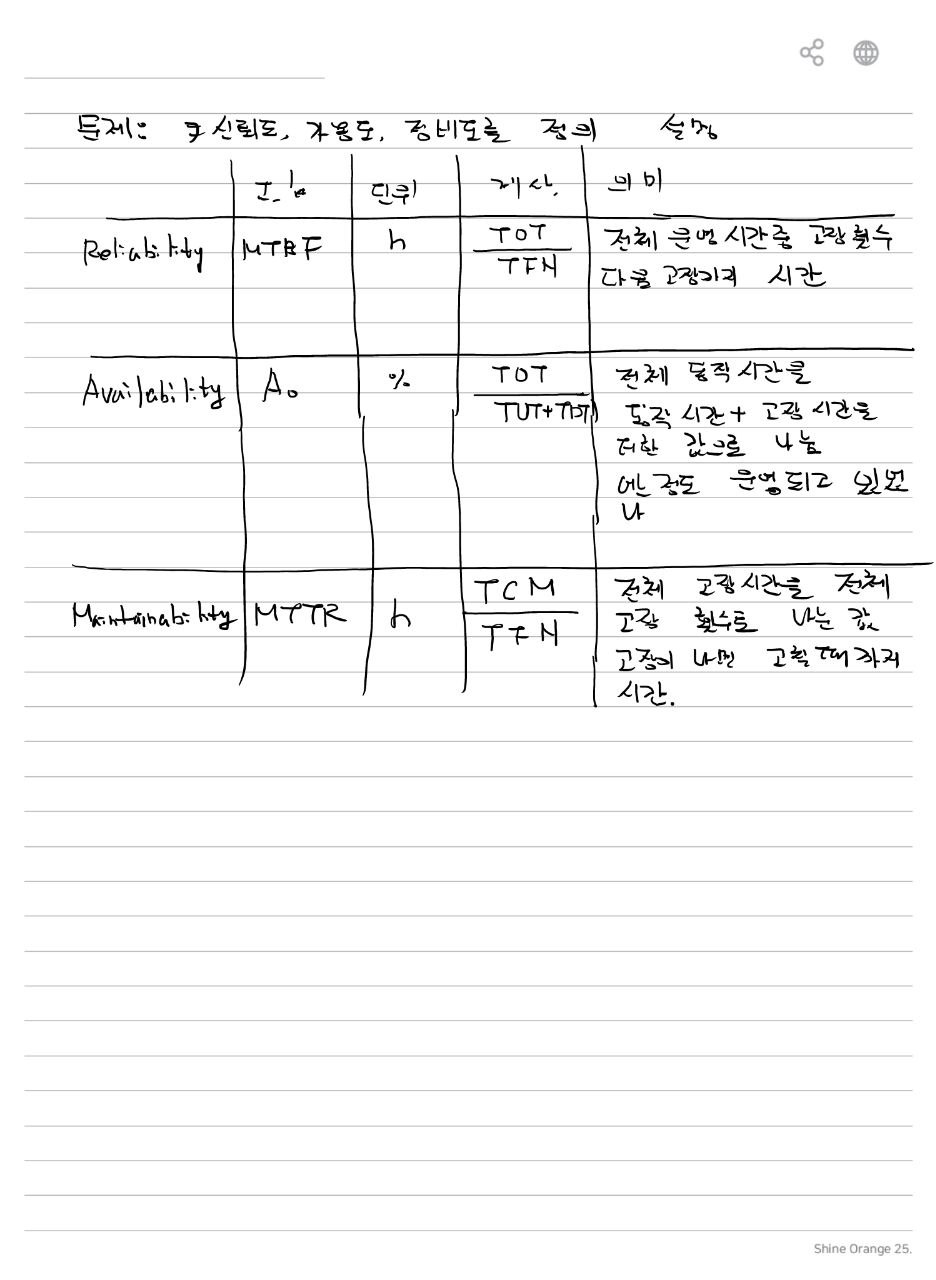 문제: 신뢰도, 가용도, 정비도를 정의 설명
단위 계산. 의미
Reliability MTBF h TOT 전체 운영시간중 고장횟수
TFN 다음 고장까지 시간
Availability Ao % TOT 전체 동작시간을
TUT+TDT 동작시간+고장시간을
더한 값으로 나눔
정도 운영되고
나
Maintainability MTTR h TCM 전체 고장시간을 전체
TFN 고장 횟수로 나눈 값
고장이 나면 고칠때까지
시간.
Shine Orange 25.